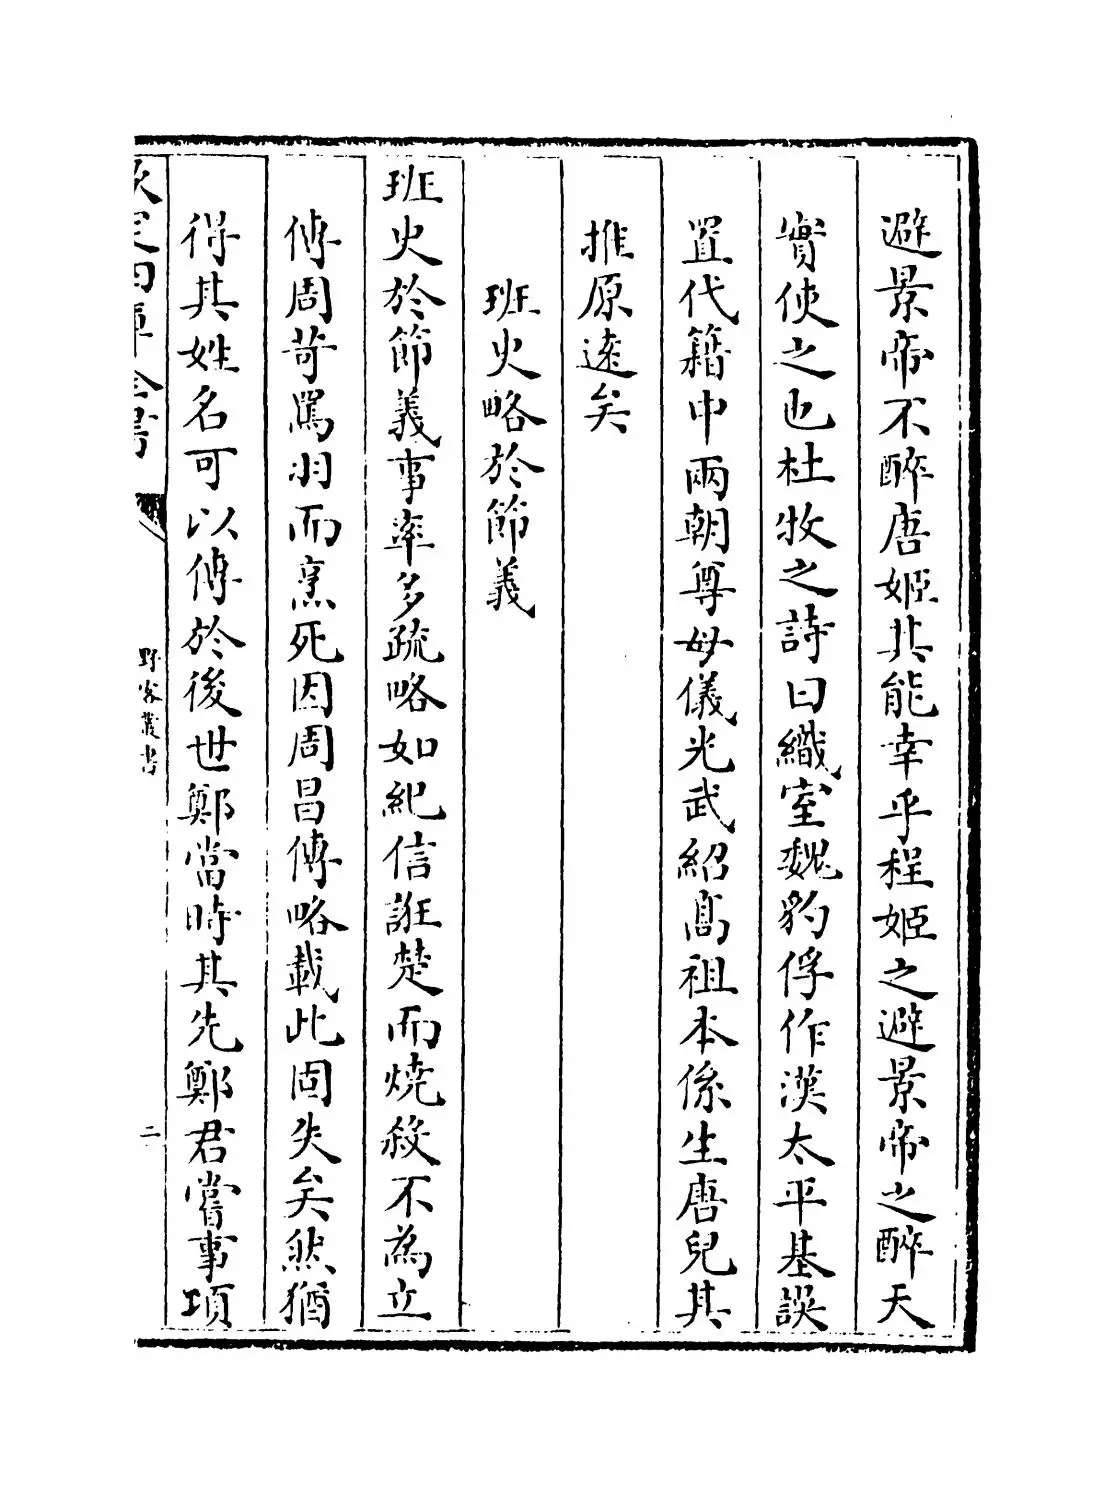 避景帝不醉唐姬其能幸乎程姬之避景帝之醉天
實使之也杜牧之詩曰織室魏豹俘作漢太平基誤
置代籍中兩朝尊母儀光武紹髙祖本係生唐兒其
推原逺矣
班史略於節義
班史於節義事率多疏略如紀信誑楚而燒殺不為立
傳周苛罵羽而烹死因周昌傳略載此固失矣然猶
得其姓名可以傳於後世鄭當時其先鄭君嘗事項
欽定四庫全書
野客叢書
二